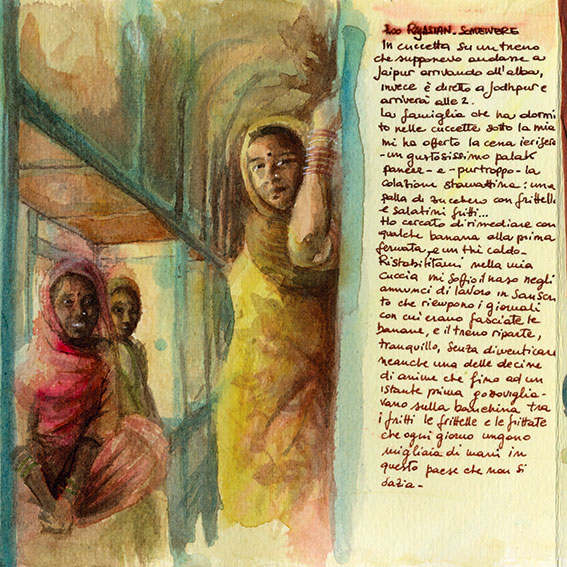 RAJASTAN. SOMEWERE
In cuccetta su un treno
che supponevo andasse a
Jaipur arrivando all'alba,
invece è diretto a Jodhpur e
arriverà alle 2.
La famiglia che ha dormi
to nelle cuccette sotto la mia
mi ha offerto la cena ieri sera
- un gustosissimo palak
paneer - e - purtroppo - la
colazione stamattina: una
palla di zucchero con frittelle
e salatini fritti...
Ho cercato di rimediare con
qualche banana alla prima
fermata, e un thi caldo -
Ristabilitami nella mia
cuccia mi soffio il naso negli
annunci di lavoro in Sanscri
to che riempono i giornali
con cui erano fasciate le
banane, e il treno riparte,
tranquillo, senza dimenticare
neanche una delle decine
di anime che fino ad un
istante prima gozzoviglia-
vano sulla banchina tra
i fritti le frittelle e le frittate
che ogni giorno ungono
migliaia di mani in
questo paese che non si
sazia -